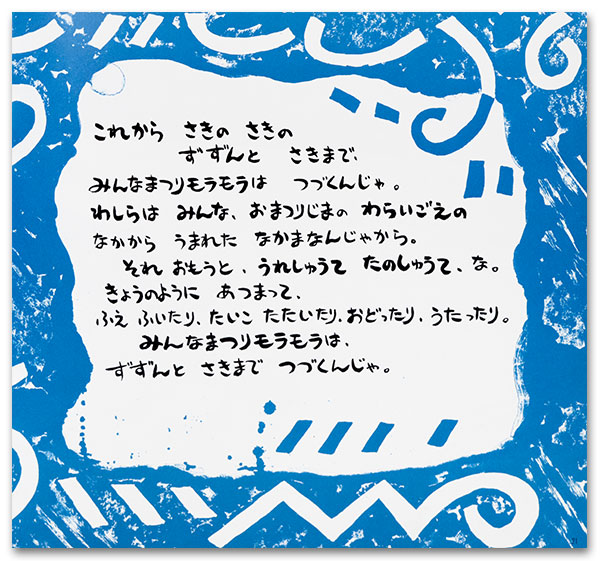 これから さきの さきの
ずずんと さきまで、
みんなまつりモラモラは つづくんじゃ。
わしらは みんな、おまつりじまの わらいごえの
なかから うまれた なかまなんじゃから。
それ おもうと、うれしゅうて たのしゅうて、な。
きょうのように あつまって、
ふえ ふいたり、たいこ たたいたり、おどったり、うたったり。
みんなまつりモラモラは、
ずずんと さきまで つづくんじゃ。